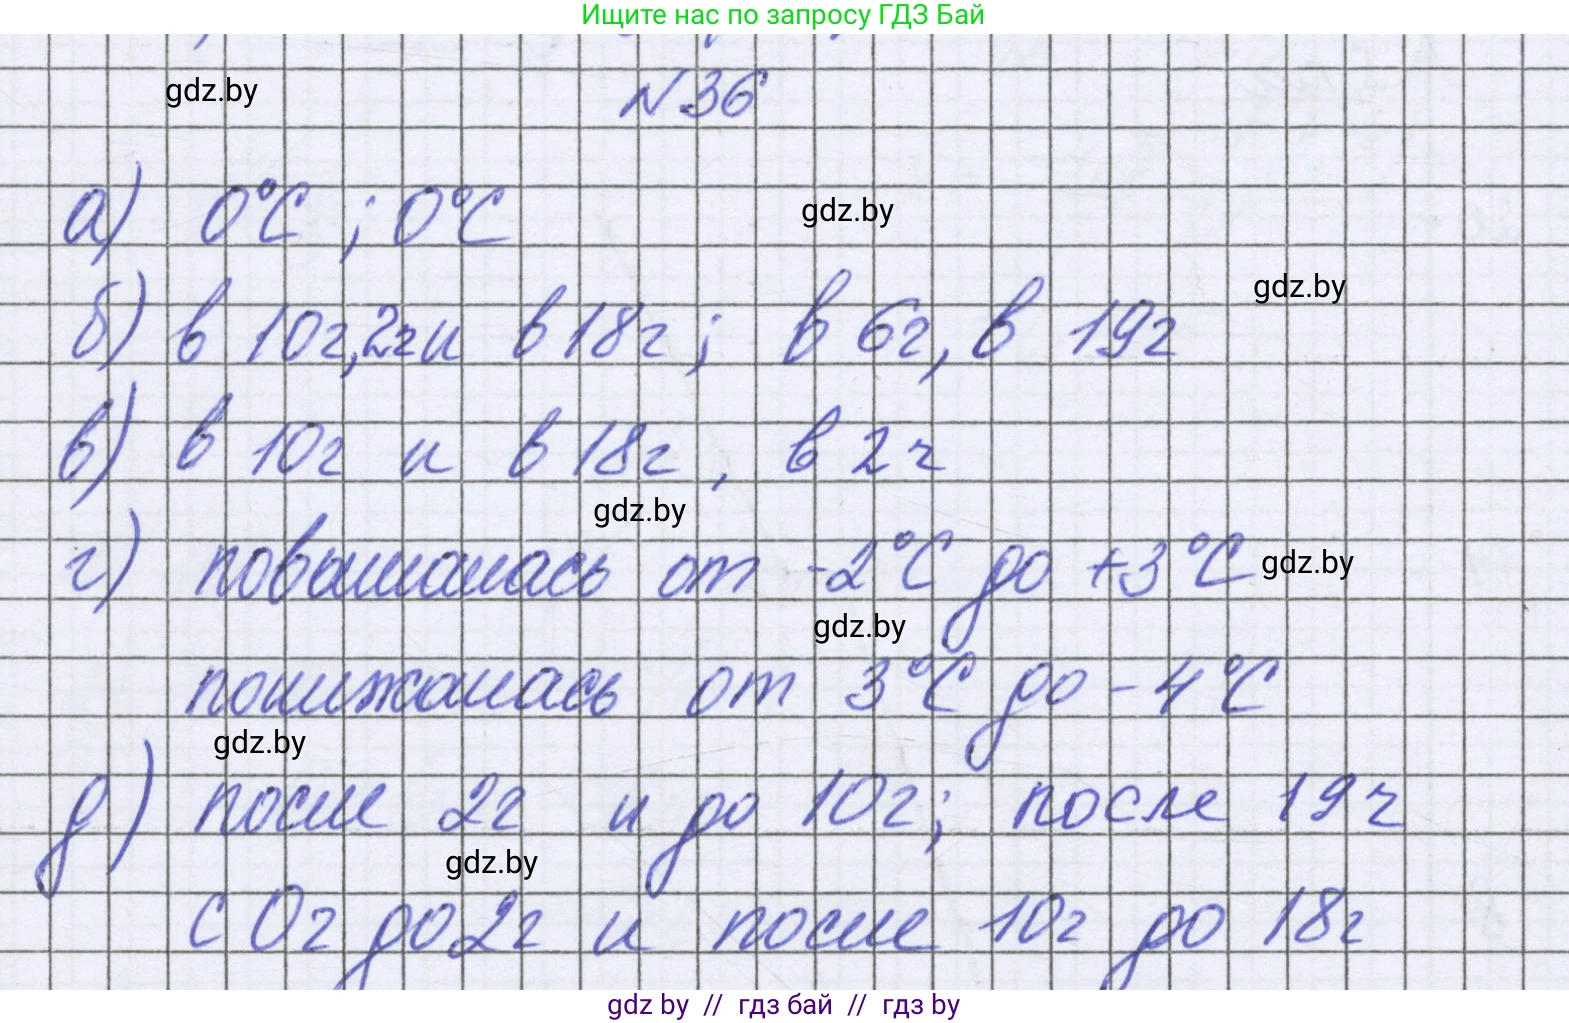 Ищите нас по запросу ГДЗ Бай
gdz.by
№36
а) 0°С ; 0°С
gdz.by
gdz.by
б) в 10г, 2ч и в 18г ; в 6г, в 19г
в) в 10г и в 18г, в 2ч
gdz.by
г) повышалась от -2°С до +3°С
gdz.by
gdz.by
понижалась от 3°С до -4°С
gdz.by
д) после 2г и до 10г; после 19ч
gdz.by
с 0г до 2г и после 10г до 18г
gdz by // гдз бай // гдз by